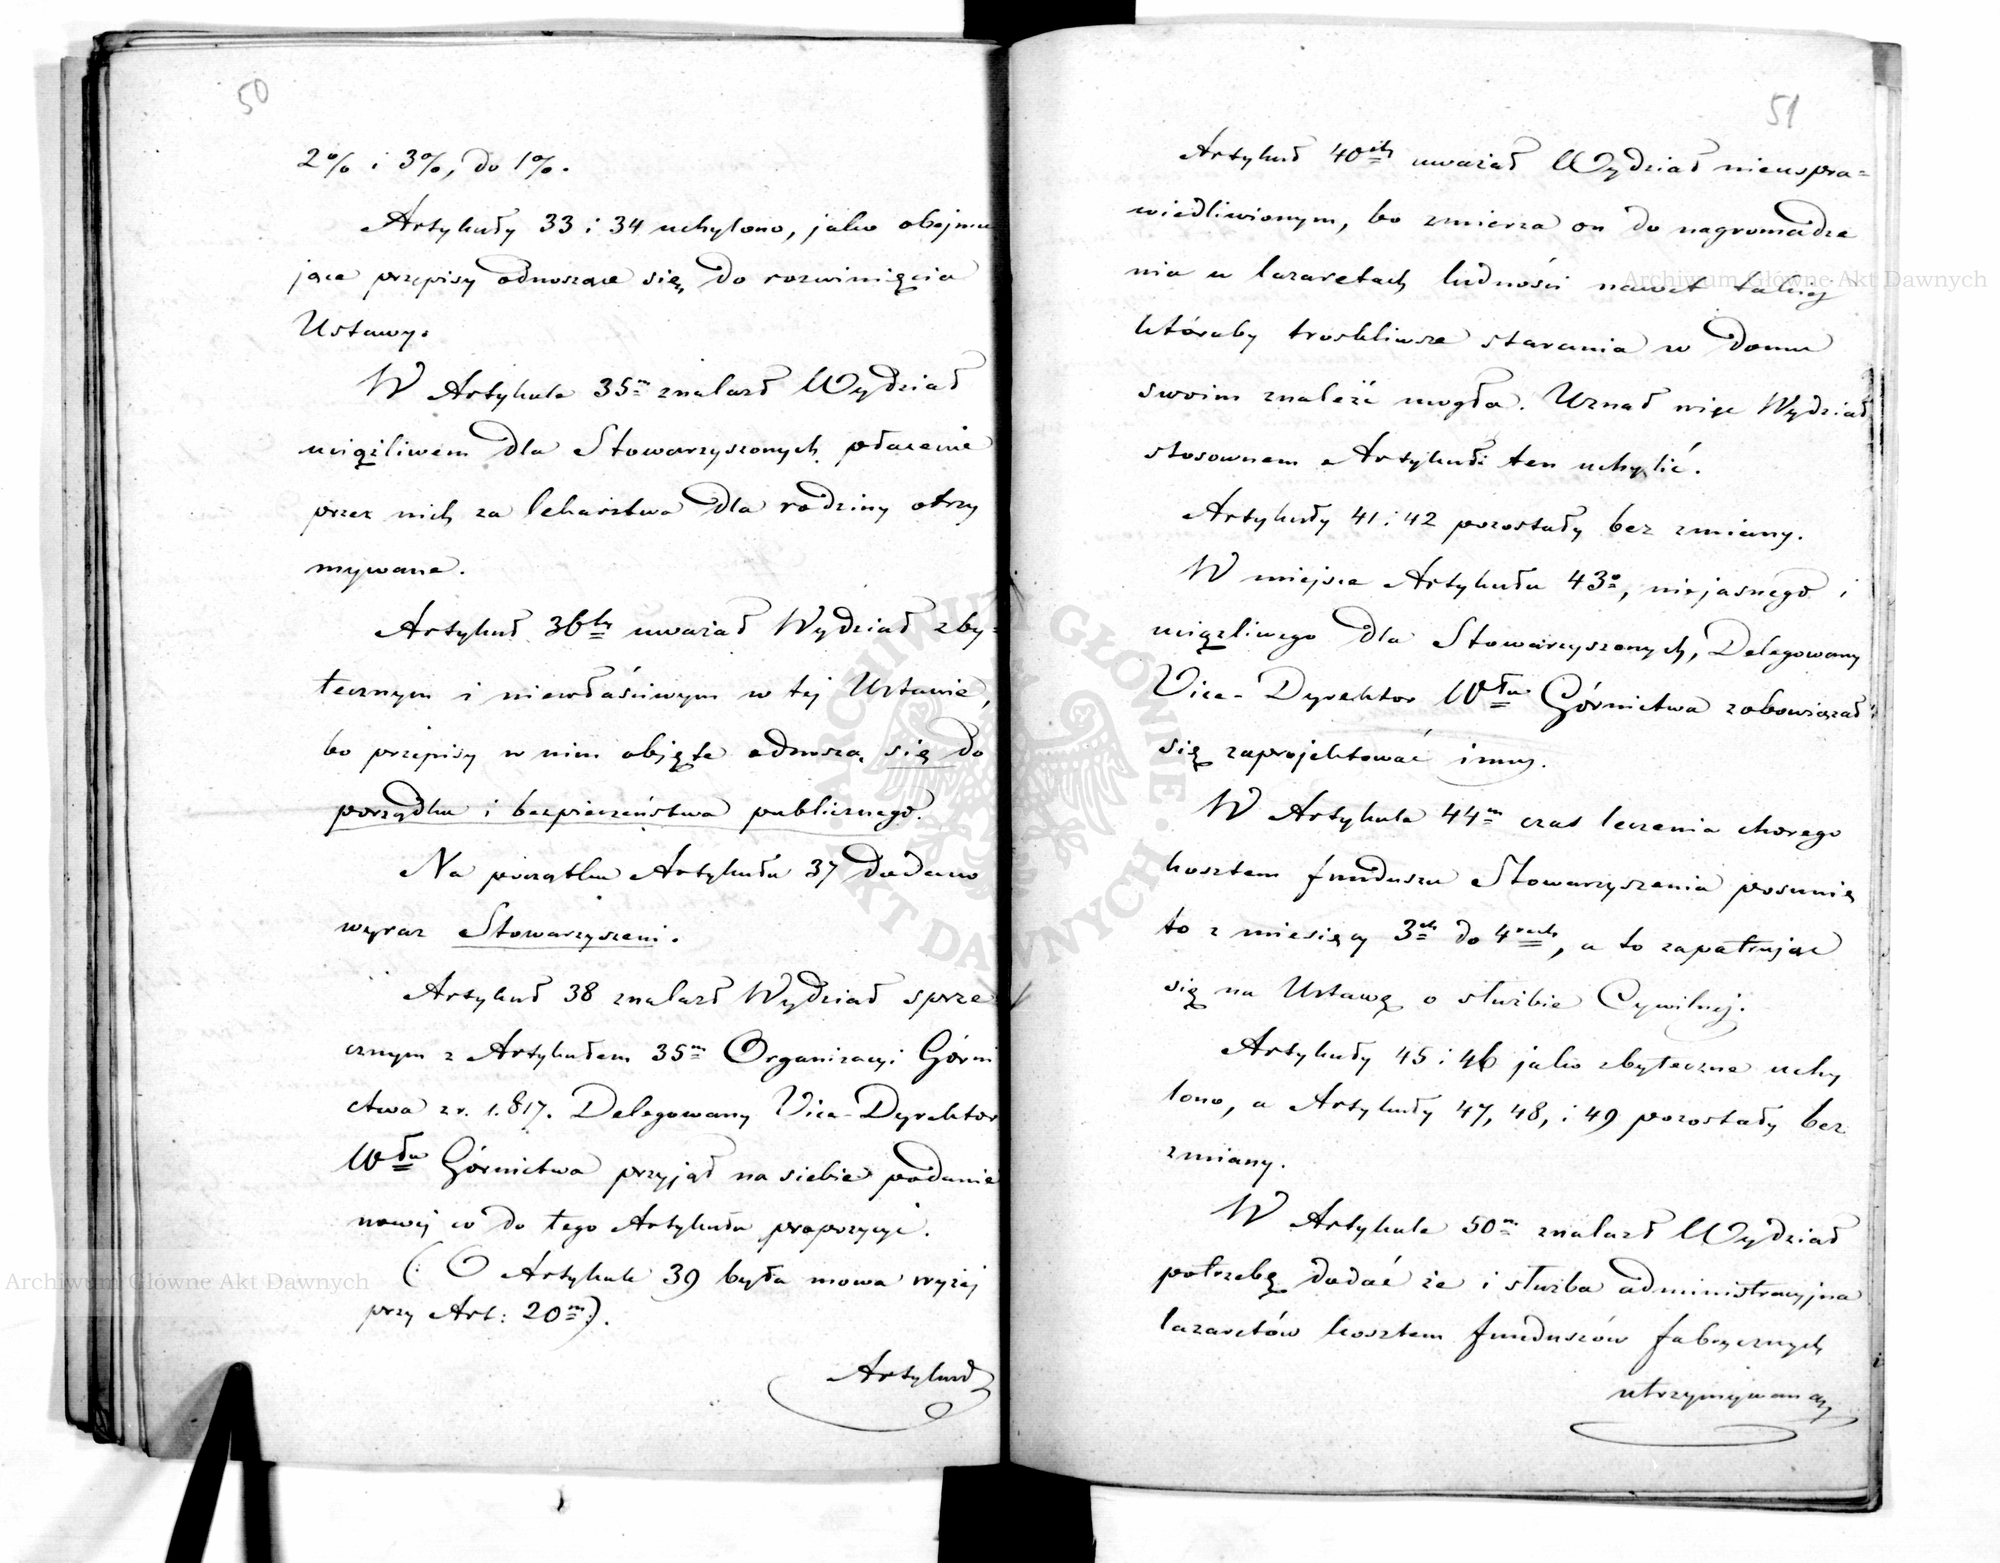 50
2% i 3%, do 1%.
Artykuły 33 i 34 uchylono, jako obejmu
jące przepisy odnoszące się do rozwinięcia
Ustawy.
W Artykule 35m znalazł Wydział
uciążliwem dla Stowarzyszonych płacenie
przez nich za lekarstwa dla rodziny otrzy
mywane.
Artykuł 36ty uważał Wydział zby=
tecznym i niewłaściwym w tej Ustawie,
bo przepisy w nim objęte odnoszą się do
porządku i bezpieczeństwa publicznego.
Na początku Artykułu 37 dodano
wyraz Stowarzyszeni.
Artykuł 38 znalazł Wydział sprze
cznym z Artykułem 35m Organizacyi Górni
ctwa z r. 1.817. Delegowany Vice-Dyrektor
Wdłu Górnictwa przyjął na siebie podanie
nowej co do tego Artykułu propozycyi.
(: O Artykule 39 była mowa wyżej
przy Art: 20m:).
Artykuł
51
Artykuł 40ty uważał Wydział nieuspra=
wiedliwionym, bo zmierza on do nagromadze
nia w lazaretach ludności nawet takiej
któraby troskliwsze starania w domu
swoim znaleźć mogła. Uznał więc Wydział
stosownem Artykuł ten uchylić.
Artykuły 41 i 42 pozostały bez zmiany.
W miejsce Artykułu 43o, niejasnego i
uciążliwego dla Stowarzyszonych, Delegowany
Vice-Dyrektor Wdłu Górnictwa zobowiązał
się zaprojektować inny.
W Artykule 44m czas leczenia chorego
kosztem funduszu Stowarzyszenia posunię
to z miesięcy 3ch do 4rech, a to zapatrując
się na Ustawę o służbie Cywilnej.
Artykuły 45 i 46 jako zbyteczne uchy
lono, a Artykuły 47, 48, i 49 pozostały bez
zmiany.
W Artykule 50m znalazł Wydział
potrzebę dodać że i służba administracyjna
lazaretów kosztem funduszów fabrycznych
utrzymywaną
Archiwum Główne Akt Dawnych
Archiwum Główne Akt Dawnych
ARCHIWUM GŁÓWNE AKT DAWNYCH